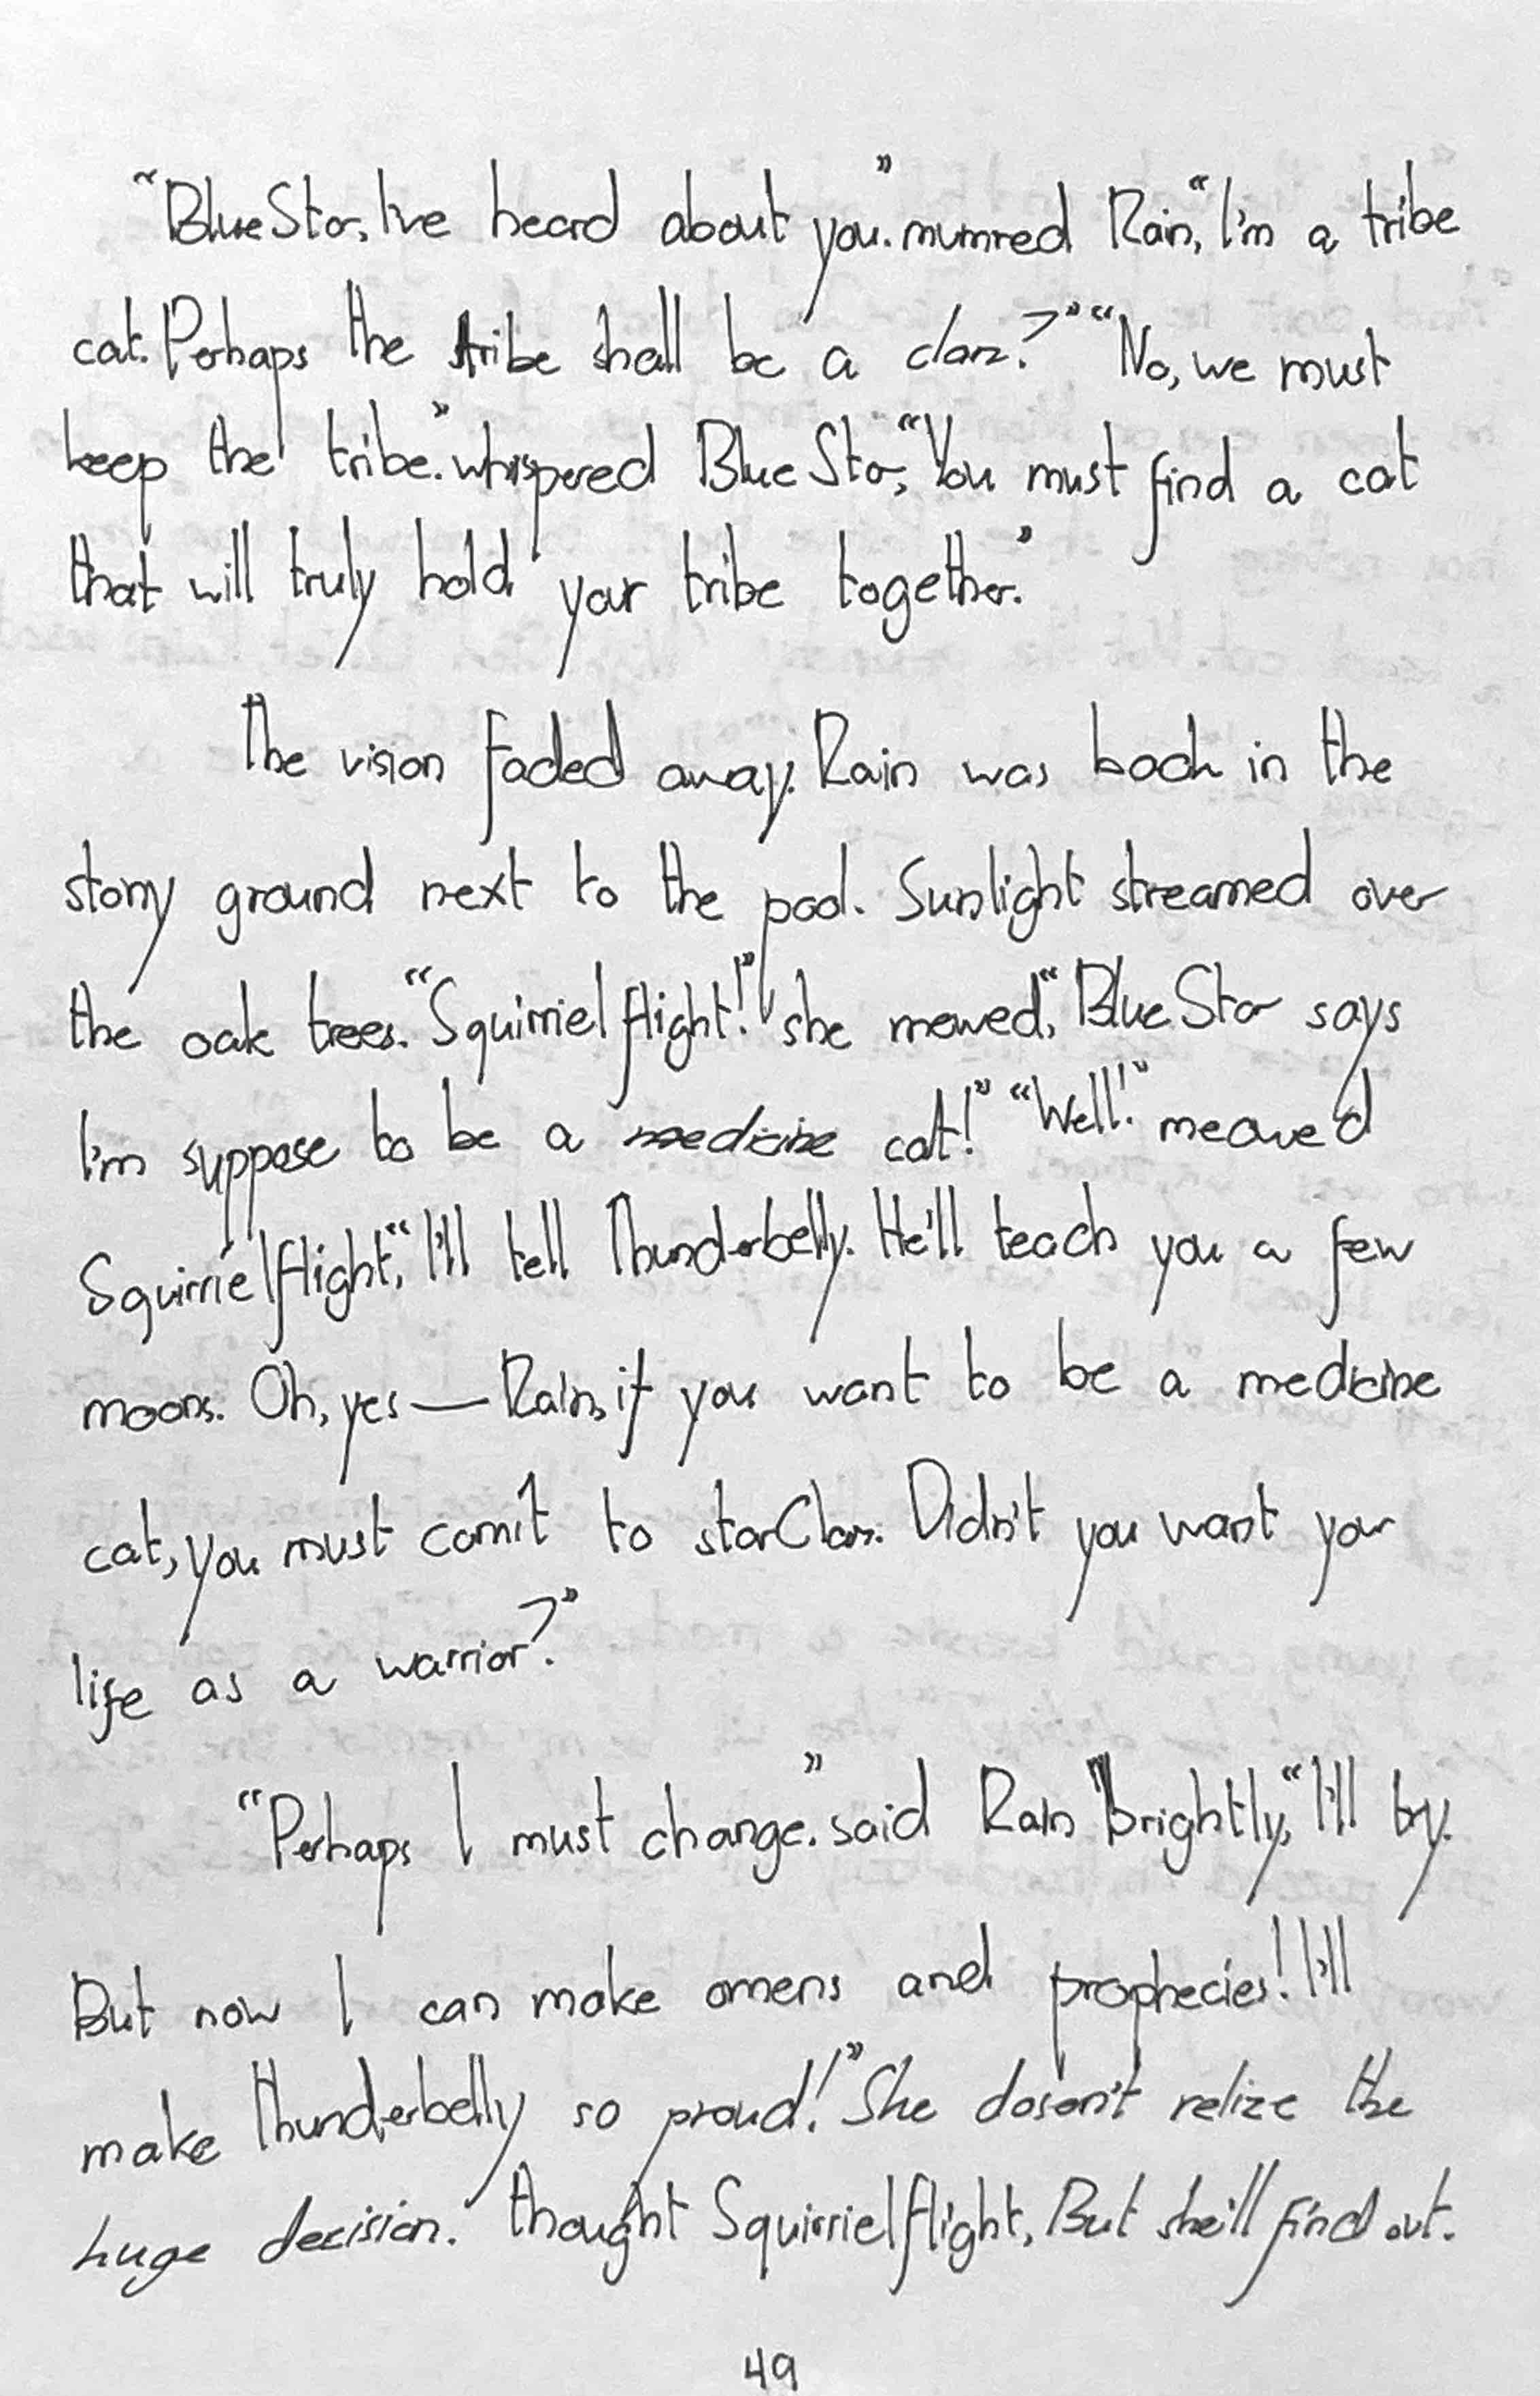 “BlueStar, I've heard about you.” mumred Rain, “I'm a tribe
cat. Perhaps the tribe shall be a clan?” “No, we must
keep the tribe.” whispered BlueStar, “You must find a cat
that will truly hold your tribe together.”
The vision faded away. Rain was back in the
stony ground next to the pool. Sunlight streamed over
the oak trees. “Squirrielflight!” she mewed, “BlueStar says
I'm suppose to be a medicine cat!” “Well!” meowed
Squirrielflight, “I'll tell Thunderbelly. He'll teach you a few
moons. Oh, yes — Rain, if you want to be a medicine
cat, you must comit to starClan. Didn't you want your
life as a warrior?”
“Perhaps I must change.” said Rain brightly, “I'll try.
But now I can make omens and prophecies! I'll
make thunderbelly so proud!” She dosen't relize the
huge decision. thought Squirrielflight, But she'll find out.
49